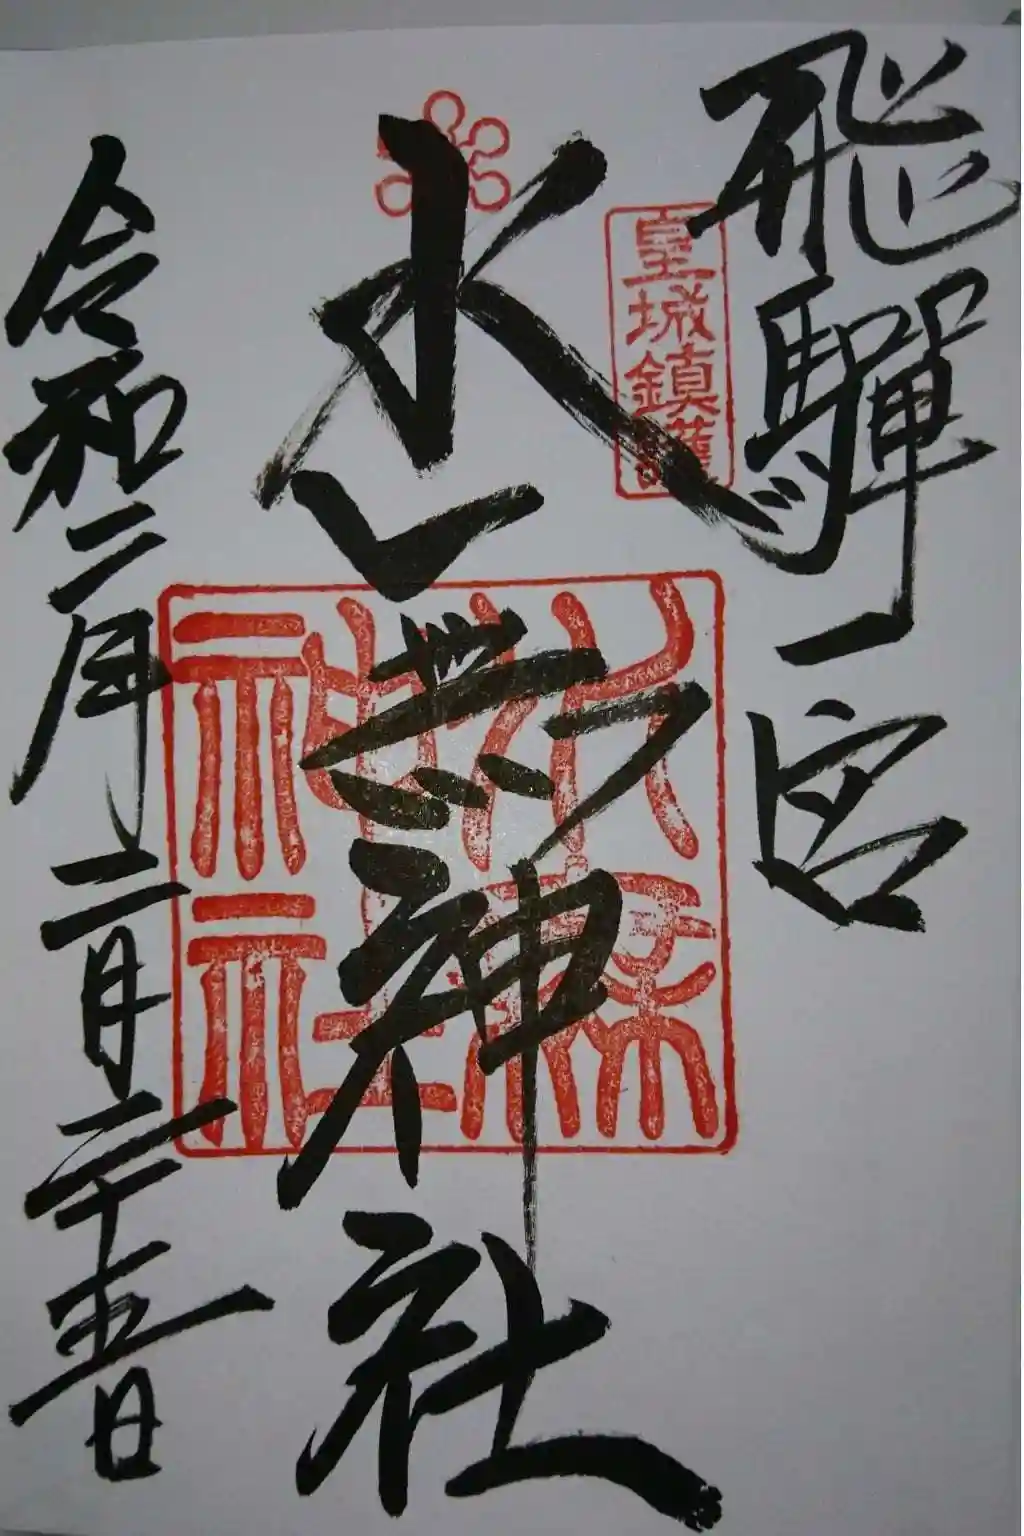 飛驒一宮
皇城鎮護
水無神社
水無神社
令和二年二月二十五日